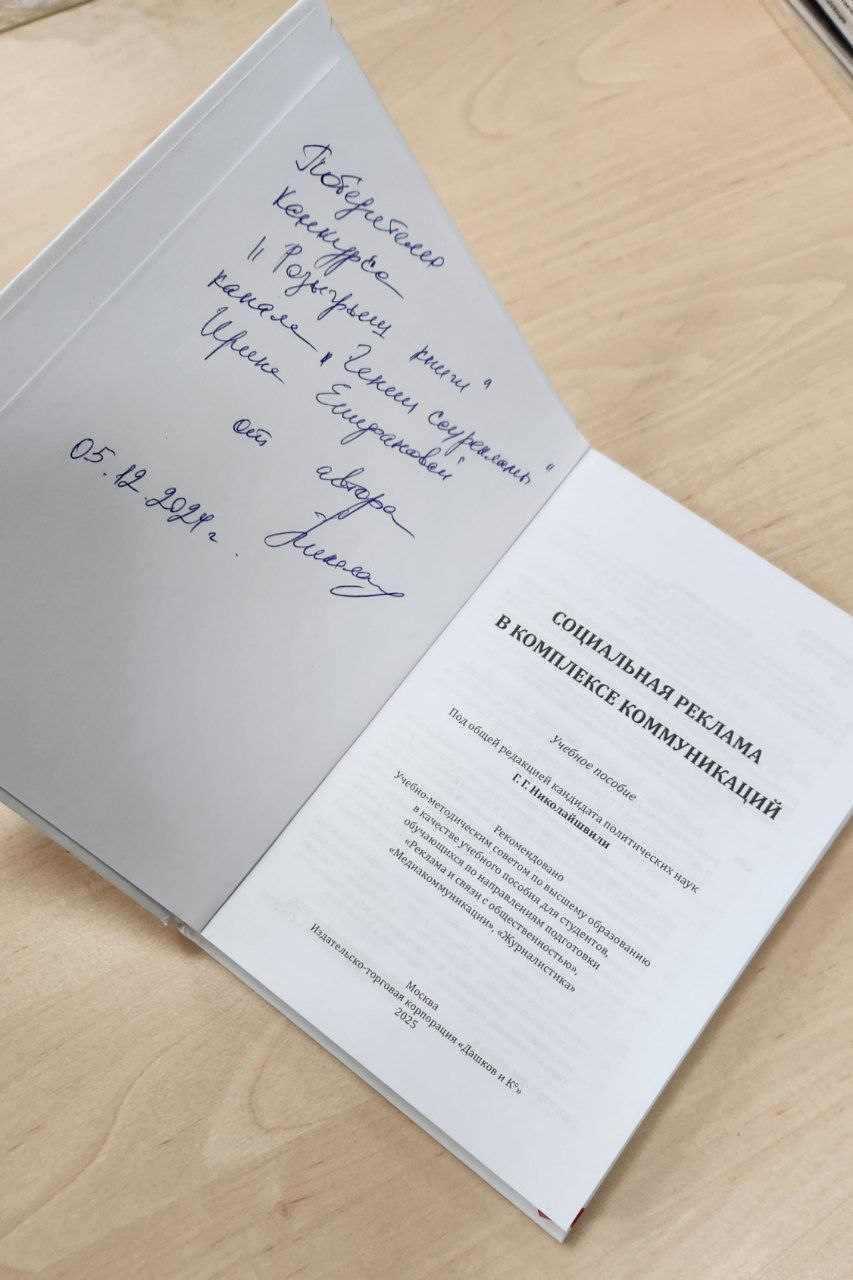 Победителю
конкурса
"Розыгрыш книги"
канала "Гении соцрекламы"
Ирине
от автора
05.12.2024 г.
СОЦИАЛЬНАЯ РЕКЛАМА
В КОМПЛЕКСЕ КОММУНИКАЦИЙ
Учебное пособие
Под общей редакцией кандидата политических наук
Г. Г. Николайшвили
Рекомендовано
Учебно-методическим советом по высшему образованию
в качестве учебного пособия для студентов,
обучающихся по направлениям подготовки
«Реклама и связи с общественностью»,
«Медиакоммуникации», «Журналистика»
Москва
Издательско-торговая корпорация «Дашков и К°»
2025